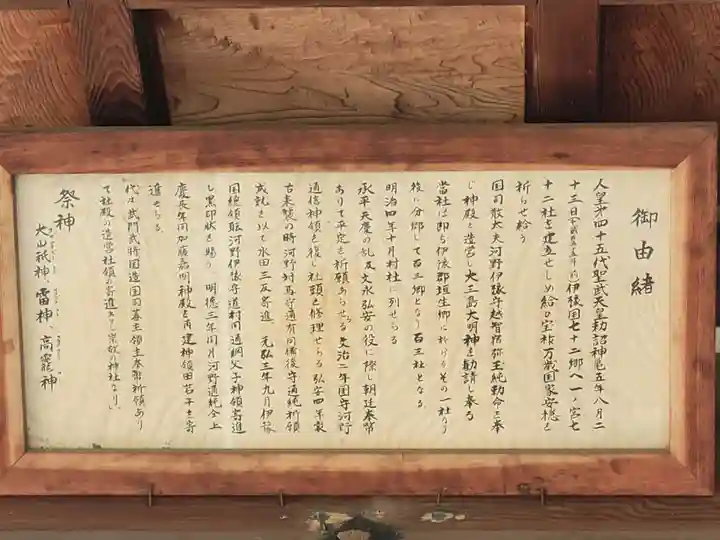 御由緒
人皇第四十五代聖武天皇勅詔神亀五年八月二
十三日 伊豫国七十二郷へ一ノ宮七
十二社を建立せしめ給ひ宝祚万歳国家安穏を
祈らせ給う
国司散太夫河野伊豫守越智宿弥玉純勅命を奉
じ神殿を造営し大三島大明神を勧請し奉る
当社は即ち伊豫郡垣生郷に於けるその一社なり
後に分郷して百三郷となり百三社となる
明治四年十月村社に列せらる
承平天慶の乱及文永弘安の役に際し朝廷奉幣
ありて平定を祈願あらせらる文治二年国守河野
通信神領を復し社頭を修理せらる弘安四年蒙
古来襲の時河野対馬守通有同備後守通純祈願
成就を以て水田三反寄進、元弘三年九月伊豫
国総領職河野伊豫守道村同通綱父子神領寄進
し黒印状を賜う 明徳三年閏月河野通純令上
慶長年間加藤嘉明神殿を再建神領田若干を寄
進せらる
代々武門武将国造国司藩主領主奉幣祈願あり
て社殿の造営社領の寄進 崇敬の神社なり
祭神
大山祇神、雷神、高龗神